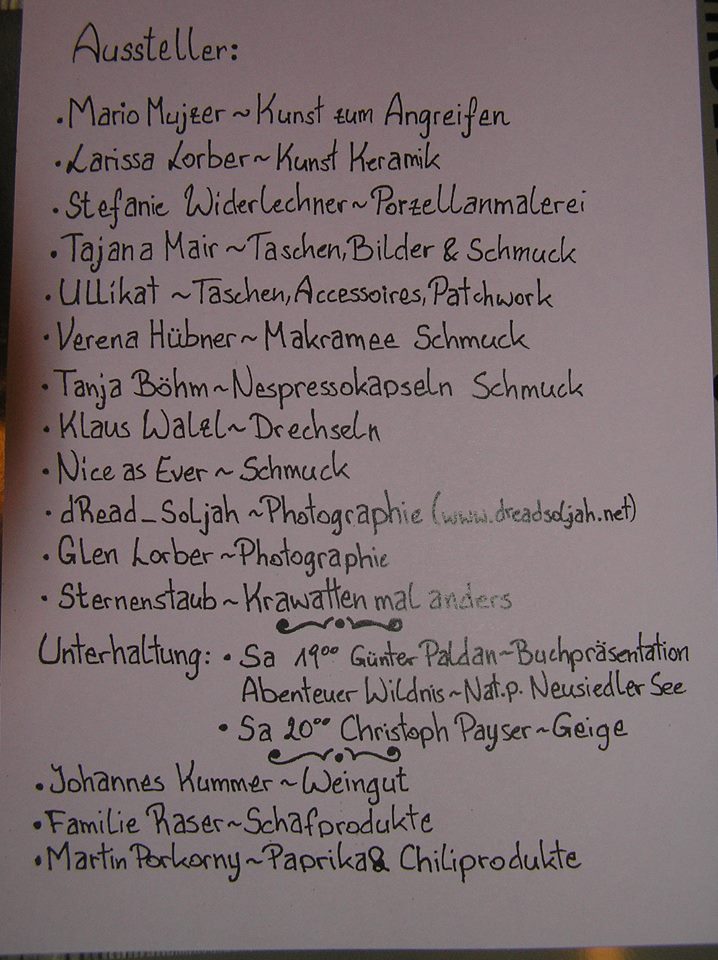 Aussteller:
• Mario Mujzer ~ Kunst zum Angreifen
• Larissa Lorber ~ Kunst Keramik
• Stefanie Widerlechner ~ Porzellanmalerei
• Tajana Mair ~ Taschen, Bilder & Schmuck
• ULLikat ~ Taschen, Accessoires, Patchwork
• Verena Hübner ~ Makramee Schmuck
• Tanja Böhm ~ Nespressokapseln Schmuck
• Klaus Walzl ~ Drechseln
• Nice as Ever ~ Schmuck
• dRead_Soljah ~ Photographie (www.dreadsoljah.net)
• Glen Lorber ~ Photographie
• Sternenstaub ~ Krawatten mal anders
Unterhaltung: • Sa 19⁰⁰ Günter Paldan ~ Buchpräsentation
Abenteuer Wildnis ~ Nat.p. Neusiedler See
• Sa 20⁰⁰ Christoph Payser ~ Geige
• Johannes Kummer ~ Weingut
• Familie Raser ~ Schafprodukte
• Martin Porkorny ~ Paprika & Chiliprodukte